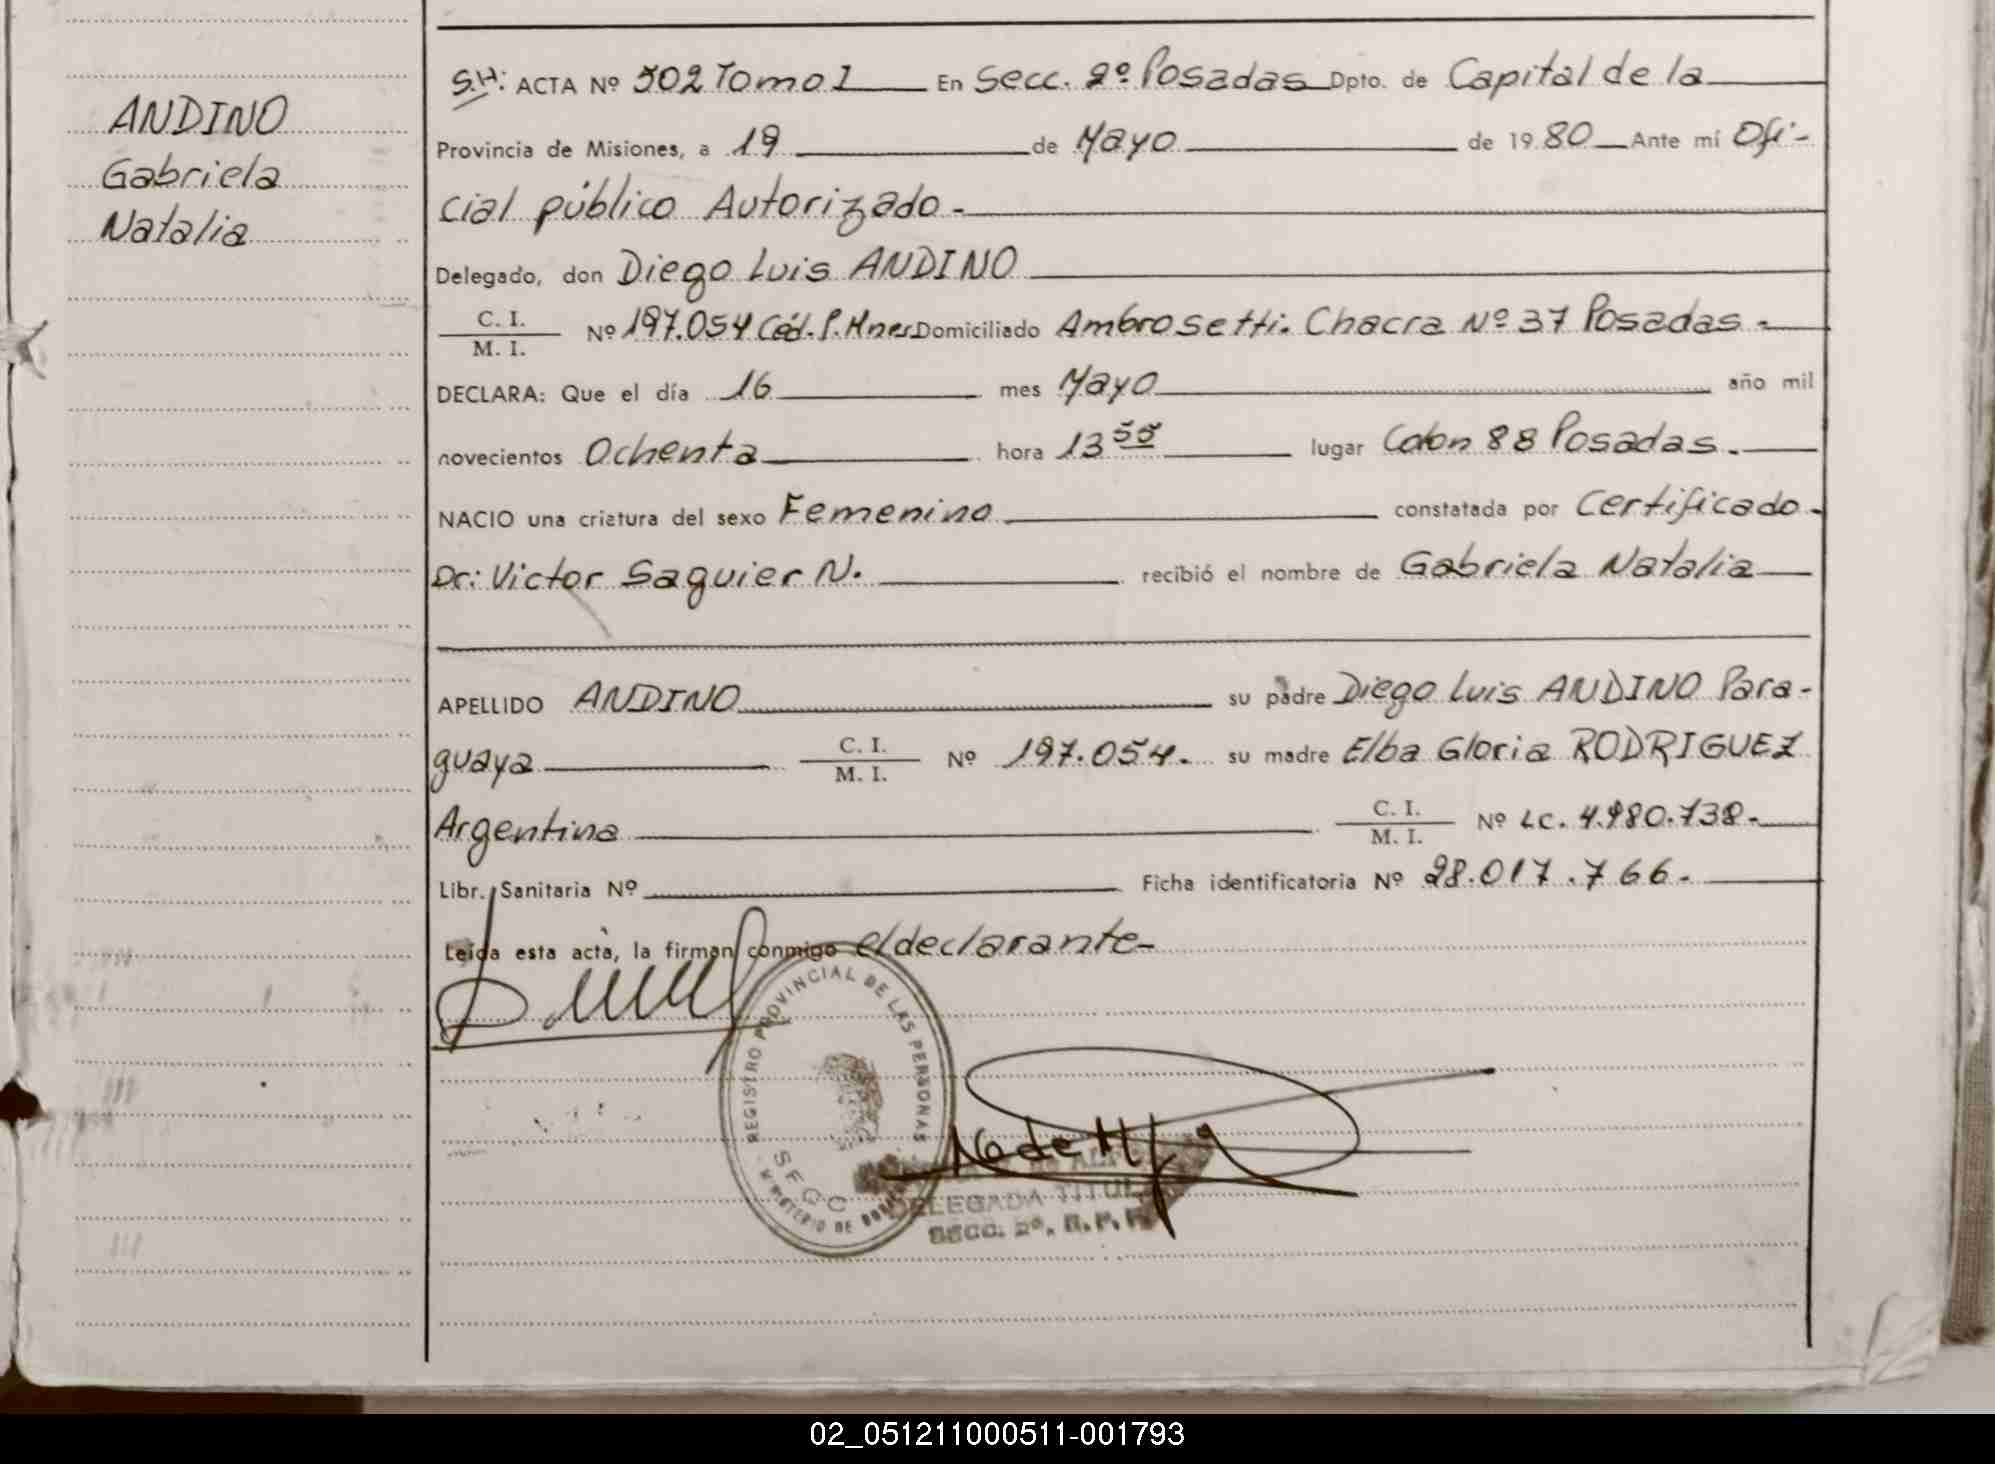 ANDINO
Gabriela
Natalia
S.H: ACTA Nº 502 Tomo 1 En Secc. 2º Posadas Dpto. de Capital de la
Provincia de Misiones, a 19 de Mayo de 1980 Ante mí Ofi-
cial público Autorizado-
Delegado, don Diego Luis ANDINO
C. I.
M. I. Nº 197.054 Céd. P. Mnes Domiciliado Ambrosetti. Chacra Nº 37 Posadas-
DECLARA: Que el día 16 mes Mayo año mil
novecientos Ochenta hora 13 55 lugar Colon 88 Posadas.-
NACIO una criatura del sexo Femenino constatada por Certificado-
Dr: Victor Saguier N. recibió el nombre de Gabriela Natalia
APELLIDO ANDINO su padre Diego Luis ANDINO Para-
guaya C. I.
M. I. Nº 197.054. su madre Elba Gloria RODRIGUEZ
Argentina C. I.
M. I. Nº LC. 4.980.738-
Libr. Sanitaria Nº Ficha identificatoria Nº 28.017.766-
Leída esta acta, la firman conmigo el declarante-
REGISTRO PROVINCIAL DE LAS PERSONAS
MINISTERIO DE
DELEGADA TITUL
SECC. 2ª. R. P. P.
02_051211000511-001793